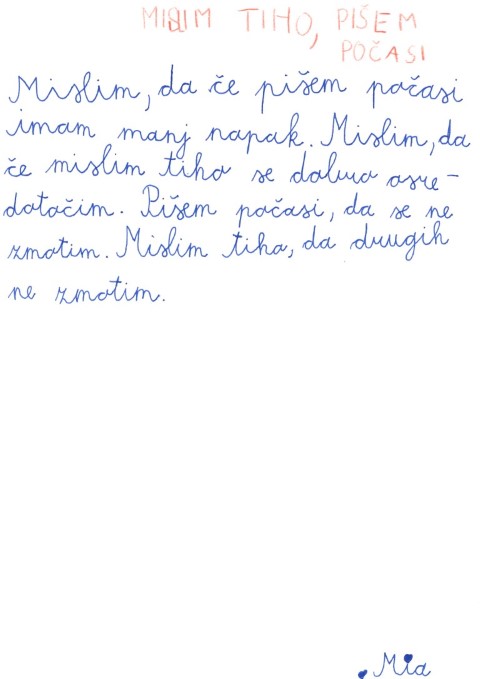 MISLIM TIHO, PIŠEM
POČASI
Mislim, da če pišem počasi
imam manj napak. Mislim, da
če mislim tiho se dobro osre-
dotočim. Pišem počasi, da se ne
zmotim. Mislim tiho, da drugih
ne zmotim.
Mia